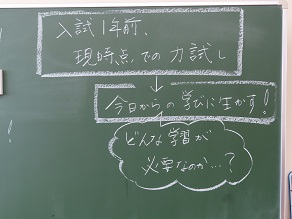 入試1年前、
現時点での力試し
↓
今日からの学びに生かす!
どんな学習が
必要なのか…?
!